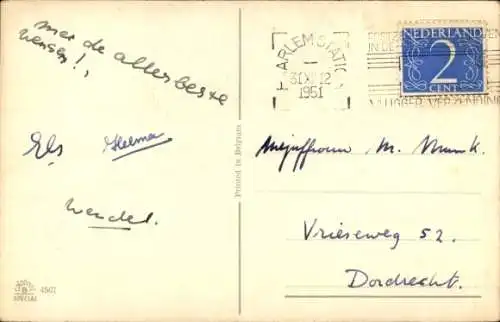 met de allerbeste
wensen!,
Els Helma
Wendel.
SPECIAL
4501
Printed in Belgium
HAARLEM STATION
31 XII 12
1951
IN DE
VLUGGER VERZENDING
NEDERLAND
2
CENT
Mejuffrouw M. Munk.
Vrieseweg 52.
Dordrecht.